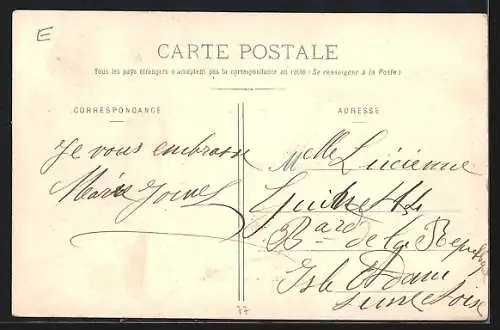 E
CARTE POSTALE
Tous les pays étrangers n'acceptent pas la correspondance au recto (Se renseigner à la Poste)
CORRESPONDANCE
ADRESSE
Je vous embrasse
Marie
Melle Lucienne
Bard de la Republique
Isle Adam
Seine et Oise
77